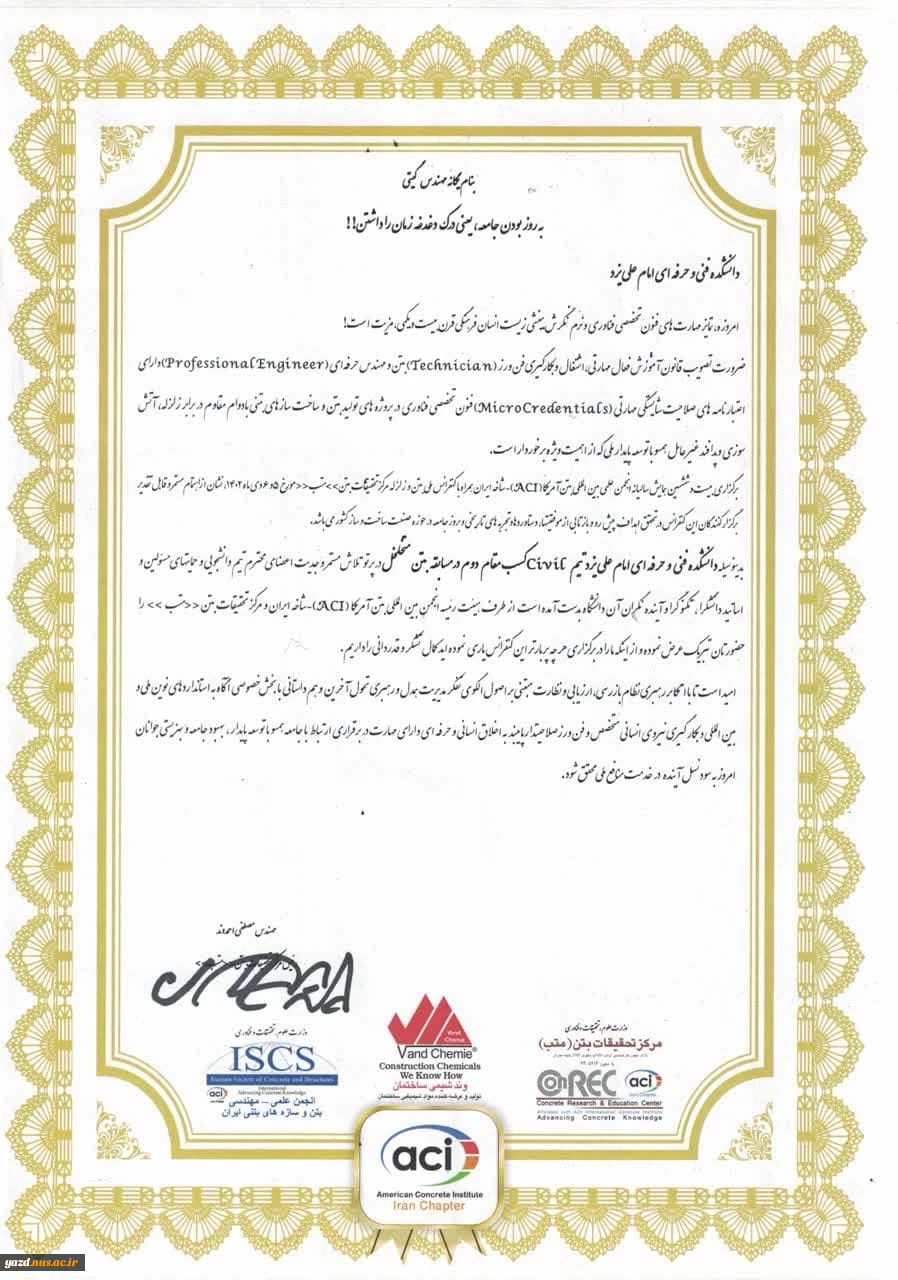 بنام یگانه مهندس گیتی
به روز بودن جامعه، یعنی درک دغدغه زمان را داشتن!!
دانشکده فنی و حرفه ای امام علی یزد
امروزه، تمایز مهارت های فنون تخصصی فناوری و نرم نگرش بینشی زیست انسان فرهنگی قرن بیست و یکمی، مزیت است!
ضرورت تصویب قانون آموزش فعال مهارتی، اشتغال و بکارگیری فن ورز (Technician) بتن و مهندس حرفه ای (Professional Engineer) دارای
اعتبارنامه های صلاحیت شایستگی مهارتی (MicroCredentials) فنون تخصصی فناوری در پروژه های تولید بتن و ساخت سازهای بتنی بادوام مقاوم در برابر زلزله، آتش
سوزی و پدافند غیرعامل همسو با توسعه پایدار ملی که از اهمیت ویژه برخوردار است.
برگزاری بیست و ششمین همایش سالیانه انجمن علمی بین المللی بتن آمریکا (ACI)-شاخه ایران همراه با کنفرانس ملی بتن و زلزله مرکز تحقیقات بتن >>متب<< مورخ ۵و۶ دی ماه ۱۴۰۲، نشان از اهتمام مستمر و قابل تقدیر
برگزارکنندگان این کنفرانس در تحقق اهداف پیش رو و بازتابی از موفقیتها، دستاوردها و تجربه های تاریخی و بروز جامعه در حوزه صنعت ساخت و ساز کشور می باشد.
بدینوسیله دانشکده فنی و حرفه ای امام علی یزد تیم Civil کسب مقام دوم در مسابقه بتن متخلخل در پرتو تلاش مستمر و جدیت اعضای محترم تیم دانشجویی و حمایتهای مسئولین و
اساتید دانشگرا، تکنوکرا و آینده نگران آن دانشگاه بدست آمده است از طرف هیئت رئیسه انجمن بین المللی بتن آمریکا (ACI)-شاخه ایران و مرکز تحقیقات بتن <<متب>> را
حضورتان تبریک عرض نموده و از اینکه ما را در برگزاری هرچه پربارتر این کنفرانس یاری نموده اید کمال تشکر و قدردانی را داریم.
امید است تا با اتکا بر رهبری نظام بازرسی، ارزیابی و نظارت مبتنی بر اصول الگوی تفکر مدیریت همدل و رهبری تحول آفرین و هم داستانی با بخش خصوصی آگاه به استانداردهای نوین ملی و
بین المللی و بکارگیری نیروی انسانی متخصص و فن ورز صلاحیتدار پایبند به اخلاق انسانی و حرفه ای دارای مهارت در برقراری ارتباط با جامعه همسو با توسعه پایدار، بهبود جامعه و بهزیستی جوانان
امروز به سود نسل آینده در خدمت منافع ملی محقق شود.
مهندس مصطفی احمدوند
وزارت علوم، تحقیقات و فناوری
ISCS
Iranian Society of Concrete and Structures
aci
International
Advancing Concrete Knowledge
انجمن علمی - مهندسی
بتن و سازه های بتنی ایران
Vand Chemie
Vand Chemie®
Construction Chemicals
We Know How
وند شیمی ساختمان
تولید و عرضه کننده مواد شیمیایی ساختمان
وزارت علوم، تحقیقات و فناوری
مرکز تحقیقات بتن (متب)
ConREC
aci
Iran Chapter
Concrete Research & Education Center
Affiliated with ACI International Concrete Institute
Advancing Concrete Knowledge
aci
American Concrete Institute
Iran Chapter
yazd.nus.ac.ir